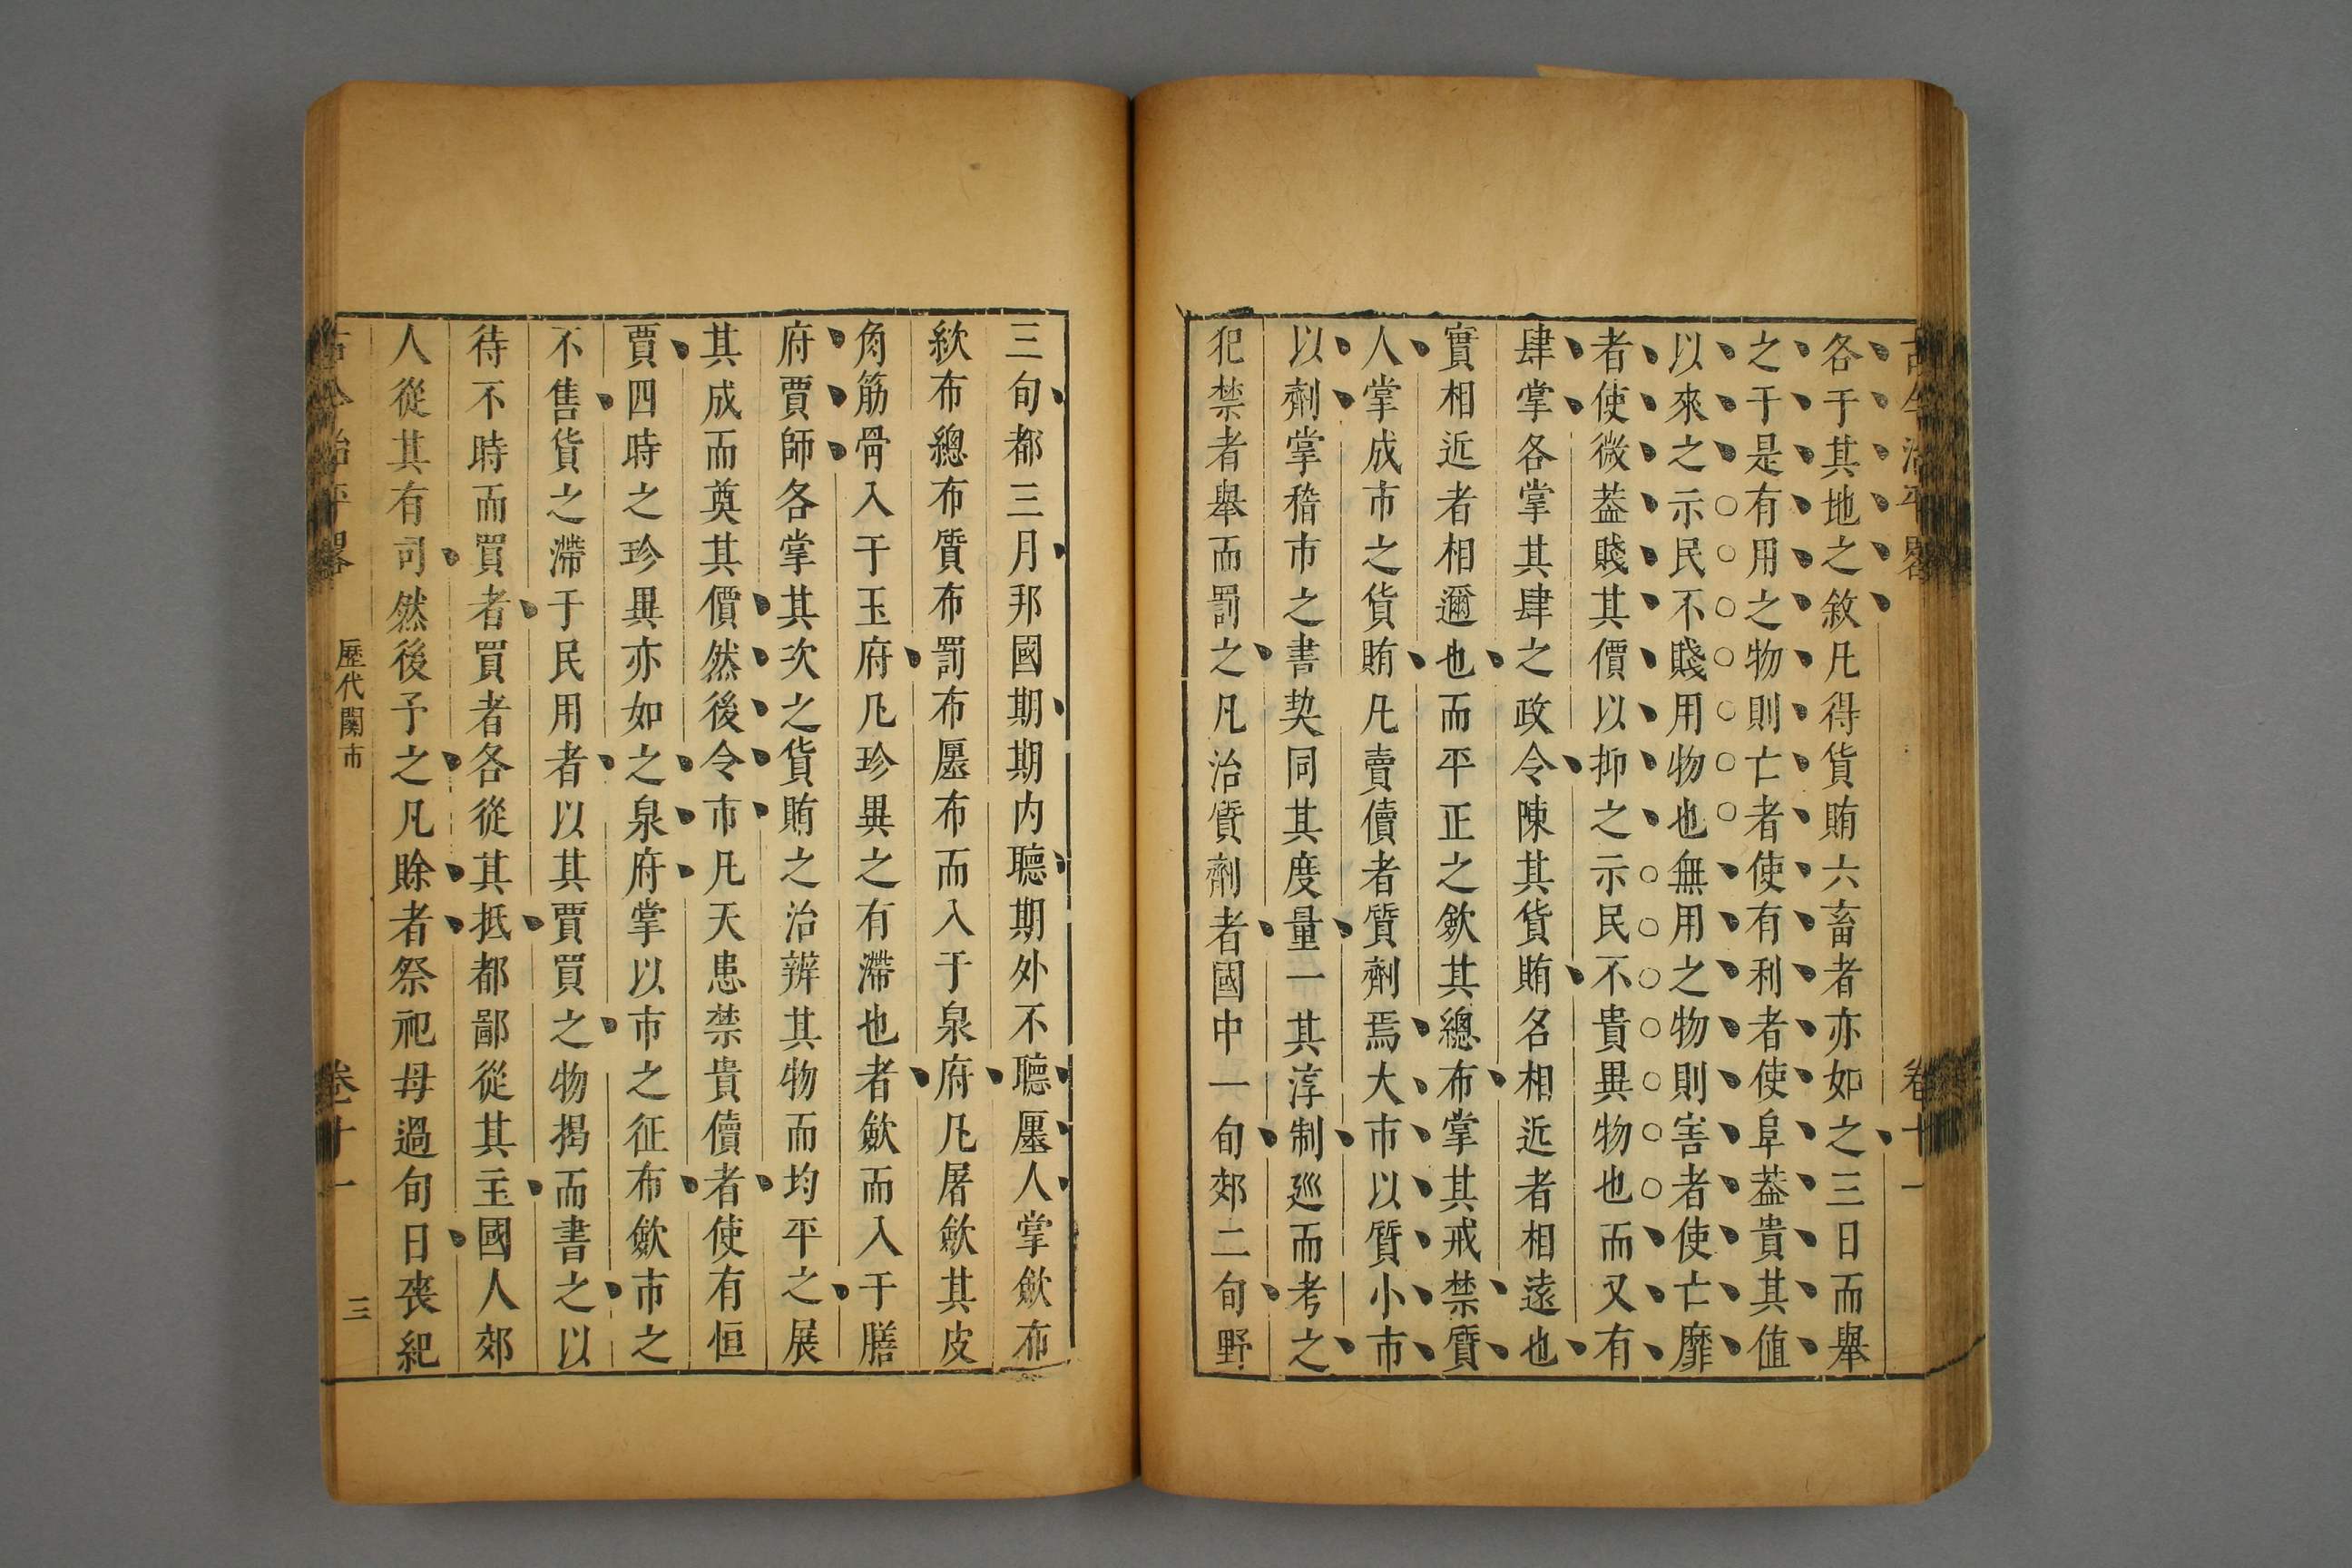 古今治平畧 卷十一
各于其地之敘凡得貨賄六畜者亦如之三日而舉
之于是有用之物則亡者使有利者使阜葢貴其值
以來之示民不賤用物也無用之物則害者使亡靡
者使微葢賤其價以抑之示民不貴異物也而又有
肆掌各掌其肆之政令陳其貨賄名相近者相遠也
實相近者相邇也而平正之歛其總布掌其戒禁質
人掌成市之貨賄凡賣儥者質劑焉大市以質小市
以劑掌稽市之書契同其度量一其淳制廵而考之
犯禁者舉而罰之凡治質劑者國中一旬郊二旬野
三旬都三月邦國期期内聽期外不聽廛人掌歛布
絘布總布質布罰布廛布而入于泉府凡屠歛其皮
角筋骨入于玉府凡珍異之有滯也者歛而入于膳
府賈師各掌其次之貨賄之治辨其物而均平之展
其成而奠其價然後令市凡天患禁貴儥者使有恒
賈四時之珍異亦如之泉府掌以市之征布歛市之
不售貨之滯于民用者以其賈買之物揭而書之以
待不時而買者買者各從其抵都鄙從其主國人郊
人從其有司然後予之凡賖者祭祀毋過旬日喪紀
古今治平畧 歷代關市 卷十一 三